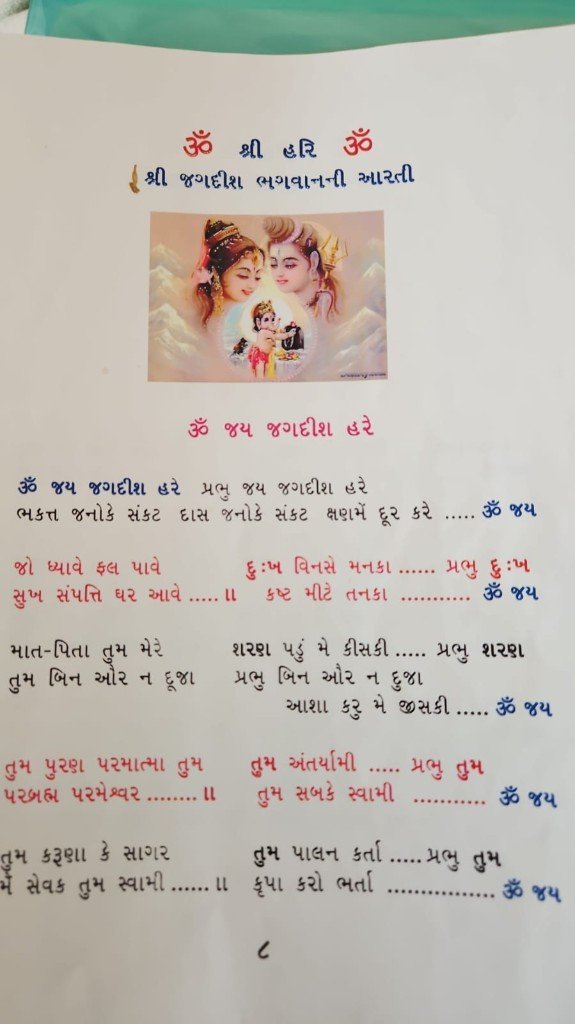 ૐ શ્રી હરિ ૐ
શ્રી જગદીશ ભગવાનની આરતી
ૐ જય જગદીશ હરે
ૐ જય જગદીશ હરે પ્રભુ જય જગદીશ હરે
ભકત્ત જનોકે સંકટ દાસ જનોકે સંકટ ક્ષણમેં દૂર કરે ..... ૐ જય
જો ધ્યાવે ફલ પાવે દુઃખ વિનસે મનકા ...... પ્રભુ દુઃખ
સુખ સંપત્તિ ઘર આવે ..... ॥ કષ્ટ મીટે તનકા ........... ૐ જય
માત-પિતા તુમ મેરે શરણ પડું મે કીસકી ..... પ્રભુ શરણ
તુમ બિન ઔર ન દૂજા પ્રભુ બિન ઔર ન દુજા
આશા કરુ મે જીસકી ..... ૐ જય
તુમ પુરણ પરમાત્મા તુમ તુમ અંતર્યામી ..... પ્રભુ તુમ
પરબ્રહ્મ પરમેશ્વર ........ ॥ તુમ સબકે સ્વામી ........... ૐ જય
તુમ કરૂણા કે સાગર તુમ પાલન કર્તા ..... પ્રભુ તુમ
મેં સેવક તુમ સ્વામી ...... ॥ કૃપા કરો ભર્તા ................ ૐ જય
૮